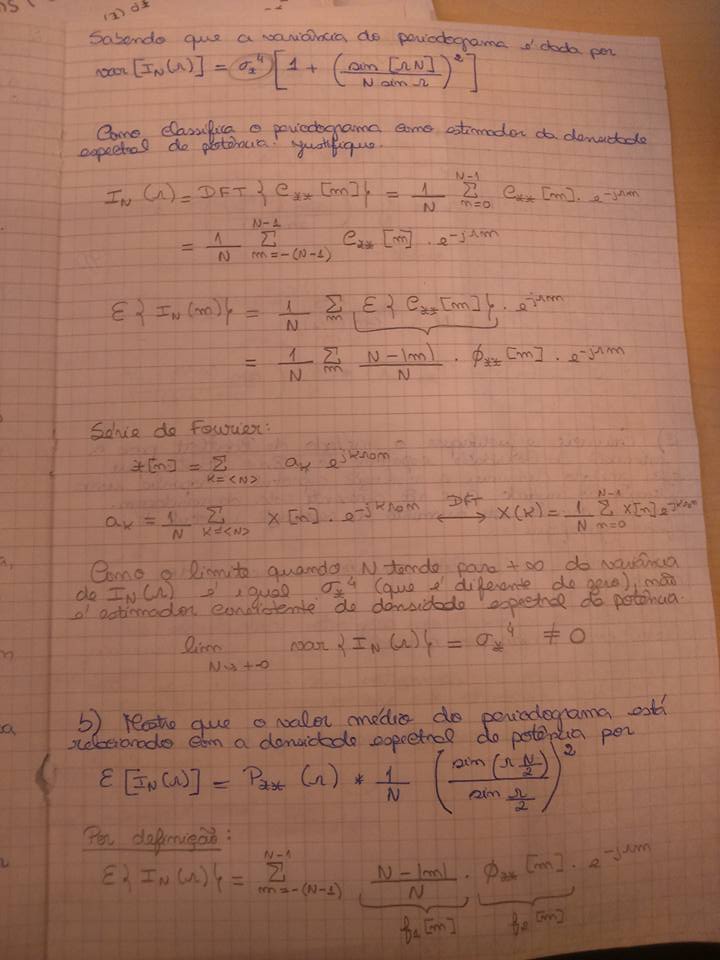 Sabendo que a variância do periodograma é dada por
var[I_N(Ω)] = σ_x^4 [1 + (sin[ΩN] / N sin Ω)^2]
Como classifica o periodograma como estimador da densidade
espectral de potência. Justifique.
I_N(Ω) = DFT{C_xx[m]} = 1/N Σ_{m=0}^{N-1} C_xx[m] . e^{-jΩm}
= 1/N Σ_{m=-(N-1)}^{N-1} C_xx[m] . e^{-jΩm}
E{I_N(m)} = 1/N Σ_m E{C_xx[m]} . e^{-jΩm}
= 1/N Σ_m N-|m|/N . φ_xx[m] . e^{-jΩm}
Série de Fourier:
x[n] = Σ_{k=<N>} a_k e^{jkΩ0n}
a_k = 1/N Σ_{k=<N>} x[n] . e^{-jkΩ0n} ⟷^{DFT} X(k) = 1/N Σ_{n=0}^{N-1} x[n] e^{-jkΩ0n}
Como o limite quando N tende para +∞ da variância
de I_N(Ω) é igual σ_x^4 (que é diferente de zero), não
é estimador consistente de densidade espectral da potência.
lim_{N→+∞} var{I_N(Ω)} = σ_x^4 ≠ 0
b) Mostre que o valor médio do periodograma está
relacionado com a densidade espectral de potência por
E[I_N(Ω)] = P_xx(Ω) * 1/N (sin(Ω N/2) / sin Ω/2)^2
Por definição:
E{I_N(Ω)} = Σ_{m=-(N-1)}^{N-1} N-|m|/N . φ_xx[m] . e^{-jΩm}
f_1[m] f_2[m]